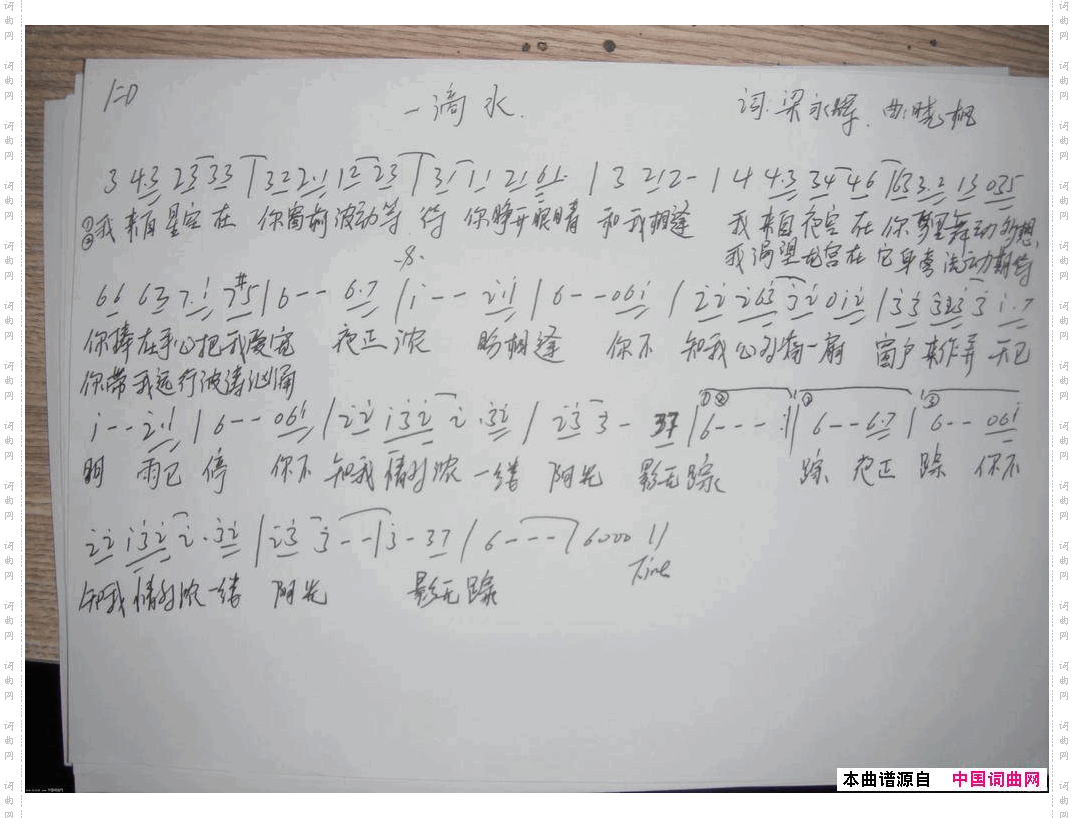 1=D
一滴水
词:梁永晖 曲:晓枫
3 4·3 23 33 | 32 2·1 12 23 | 31 11 21 61· | 3 212- | 4 4·3 34 46 | 63 3·2 13 035
①我来自星空在 你窗前波动等待 你睁开眼睛 和我相逢 我来自夜空在你梦里舞动多想
②我渴望龙宫在它身旁流动期待
66 63 7·1 7#5 | 6-- 6·7 | i-- 2·1 | 6--06i | 22 263 32 012 | 33 323 3 1·7
你捧在手心把我爱宠 夜正浓 盼相逢 你不 知我心为你 一扇 窗户 弄 天已
你带我远行波涛汹涌
i--2·1 | 6---06i | 22 132 2·32 | 233- 37 | 6---:| 6--6·7 | 6--06i
明 雨已停 你不知我情对浓一缕 阳光 影无踪 踪 夜正 踪 你不
22 132 2·32 | 23 3--| 3-37 | 6--- | 6000 ||
知我情对浓一缕 阳光 影无踪
Fine
本曲谱源自 中国词曲网